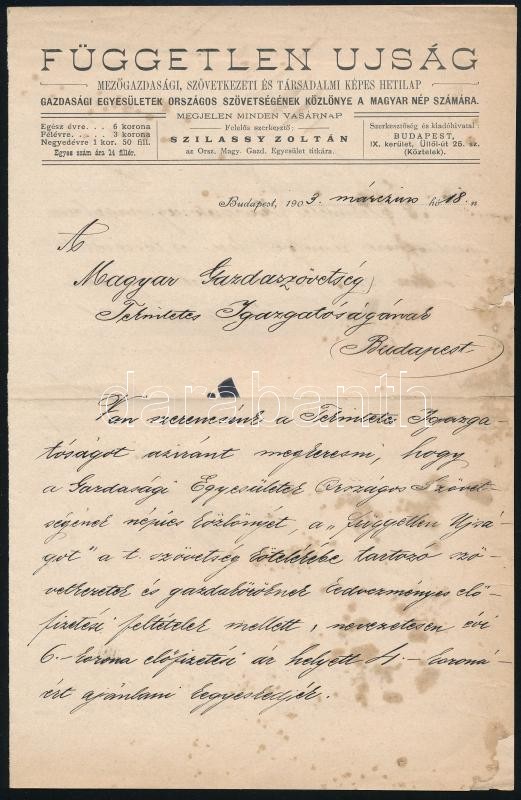 FÜGGETLEN UJSÁG
MEZŐGAZDASÁGI, SZÖVETKEZETI ÉS TÁRSADALMI KÉPES HETILAP
GAZDASÁGI EGYESÜLETEK ORSZÁGOS SZÖVETSÉGÉNEK KÖZLÖNYE A MAGYAR NÉP SZÁMÁRA.
MEGJELEN MINDEN VASÁRNAP
Egész évre. . . 6 korona
Félévre. . . . 3 korona
Negyedévre 1 kor. 50 fill.
Egyes szám ára 14 fillér.
Felelős szerkesztő:
SZILASSY ZOLTÁN
az Orsz. Magy. Gazd. Egyesület titkára.
Szerkesztőség és kiadóhivatal
BUDAPEST,
IX. kerület, Üllői-út 25. sz.
(Köztelek).
Budapest, 1903. márczius hó 18.-n
A
Magyar Gazdaszövetség
Tekintetes Igazgatóságának
Budapest
darabanth
Van szerencsénk a Tekintetes Igazga-
tóságot aziránt megkeresni, hogy
a Gazdasági Egyesületek Országos Szövet-
ségének népies közlönyét, a „Független Ujsá-
got" a t. szövetség kötelékébe tartozó szö-
vetkezetek és gazdaköröknek kedvezményes elő-
fizetési feltételek mellett, nevezetesen évi
6.- korona előfizetési ár helyett 4.- koroná-
ért ajánlani kegyeskedjék.